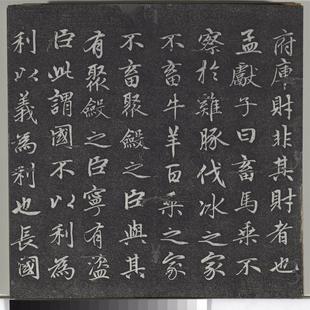 府庫財非其財者也
孟獻子曰畜馬乘不
察於雞豚伐冰之家
不畜牛羊百乘之家
不畜聚斂之臣與其
有聚斂之臣寧有盜
臣此謂國不以利為
利以義為利也長國